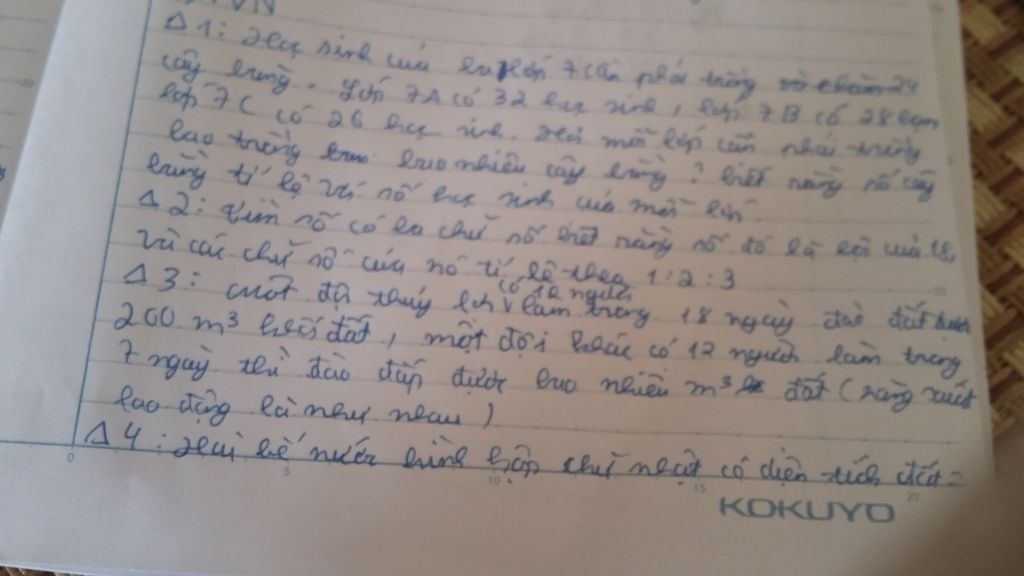 TVN
Δ 1: Học sinh của ba lớp 7 cần phải trồng và chăm 24
cây bàng. Lớp 7A có 32 học sinh, lớp 7B có 28 học
lớp 7C có 26 học sinh. Hỏi mỗi lớp cần phải trồng
bao trồng bao bao nhiêu cây bàng? biết rằng số cây
bàng tỉ lệ với số học sinh của mỗi lớp
Δ 2: Tìm số có ba chữ số biết rằng số đó là bội của 18,
và các chữ số của nó tỉ lệ theo 1:2:3
có 12 người
Δ 3: Một đội thủy lợi làm trong 18 ngày đào đắp được
200 m³ khối đất, một đội khác có 12 người làm trong
7 ngày thì đào đắp được bao nhiêu m³ đất (năng suất
lao động là như nhau)
Δ 4: Hai bể nước hình hộp chữ nhật có diện tích đáy =
0 5 10 15 20
KOKUYO